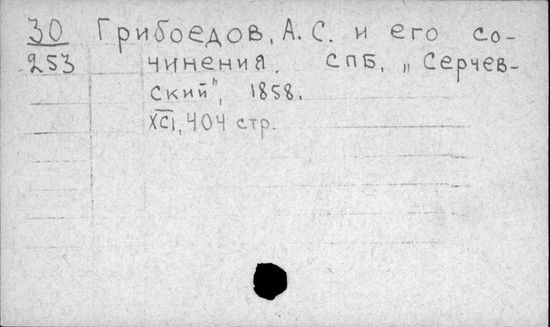 30 Грибоедов, А. С. и его со-
253 чинения. СПБ, „Серчев-
ский", 1858.
XCI, 404 стр.